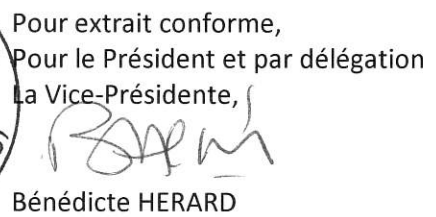 Pour extrait conforme,
Pour le Président et par délégation
La Vice-Présidente,
Bénédicte HERARD